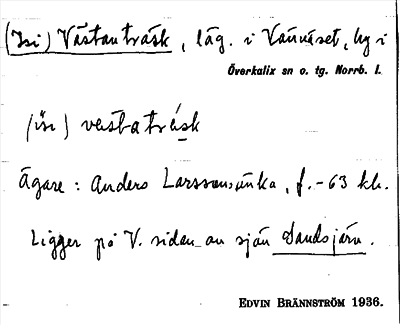 (Isi) Västanträsk, läg. i Vännäset, by i
Överkalix sn o. tg. Norrb. l.
(isi) västaträsk
Ägare: Anders Larssons änka, f. -63 kh.
Ligger på V. sidan av sjön Sandsjärv.
EDVIN BRÄNNSTRÖM 1936.